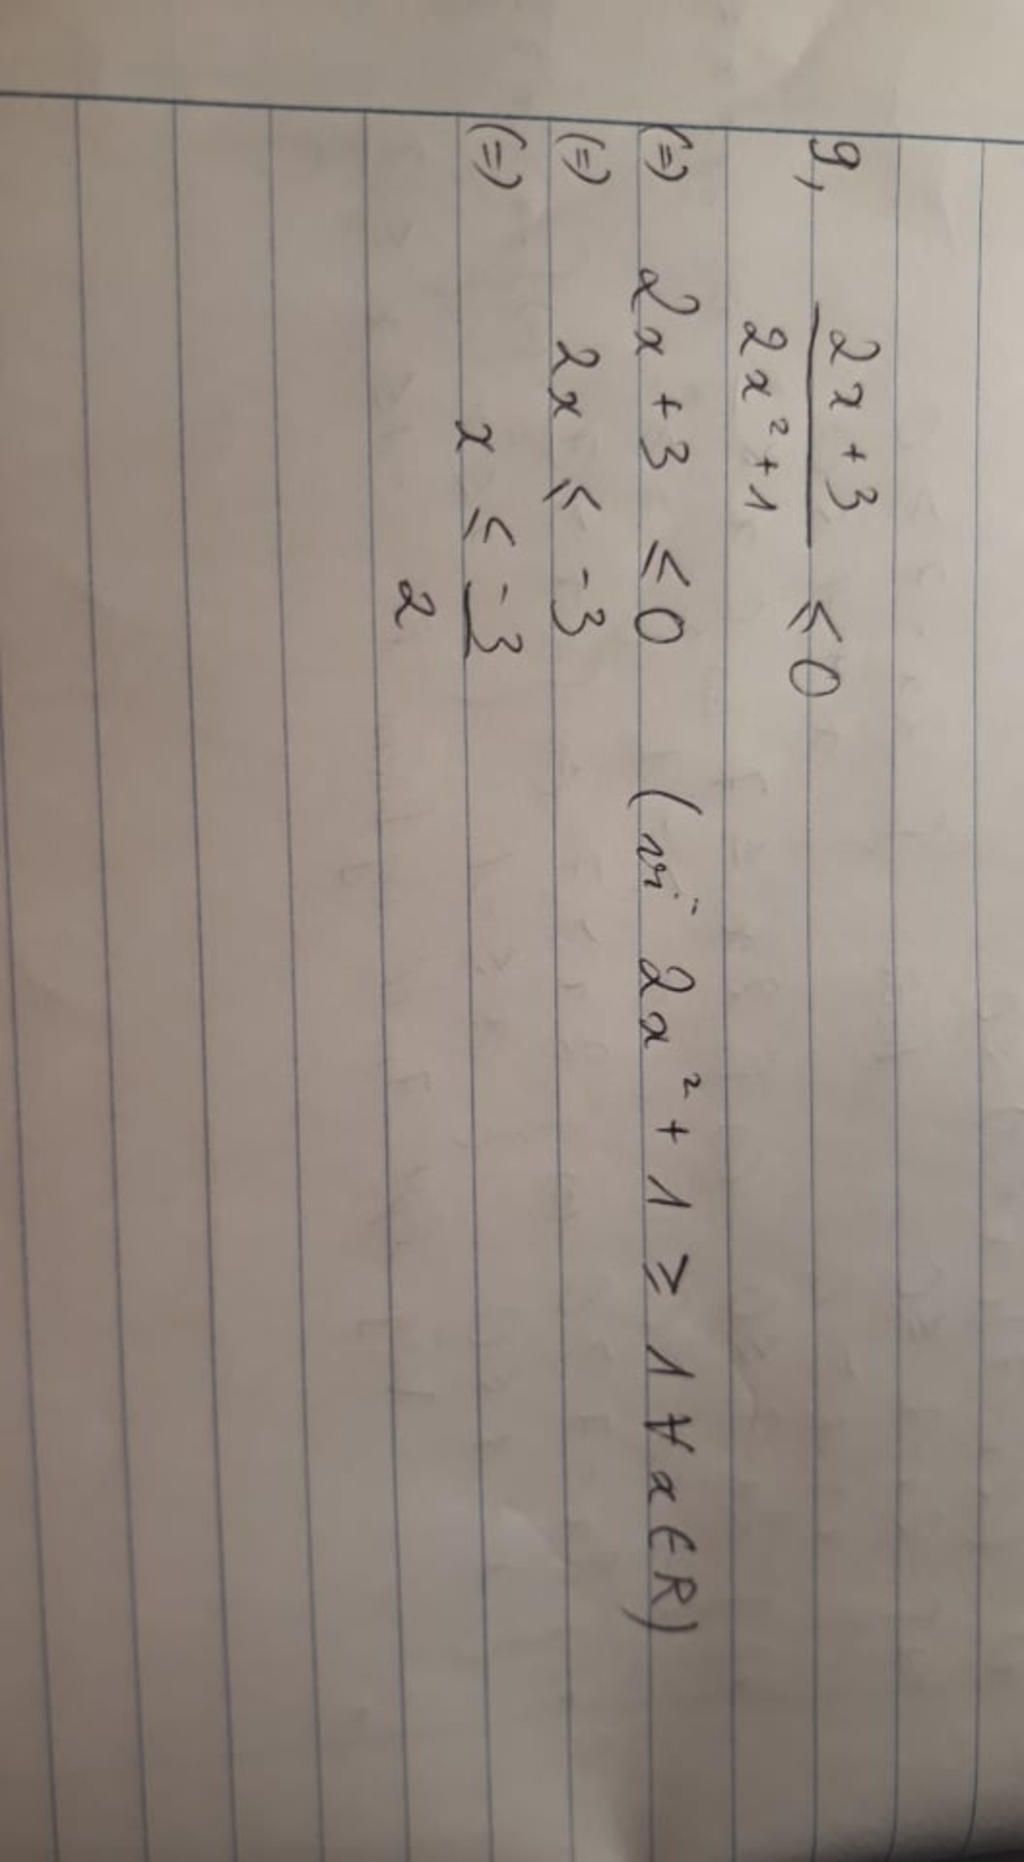 g, \frac{2x+3}{2x²+1} ≤ 0
(=) 2x + 3 ≤ 0 (vì 2x² + 1 ≥ 1 ∀ x ∈ R)
(=) 2x ≤ -3
(=) x ≤ \frac{-3}{2}